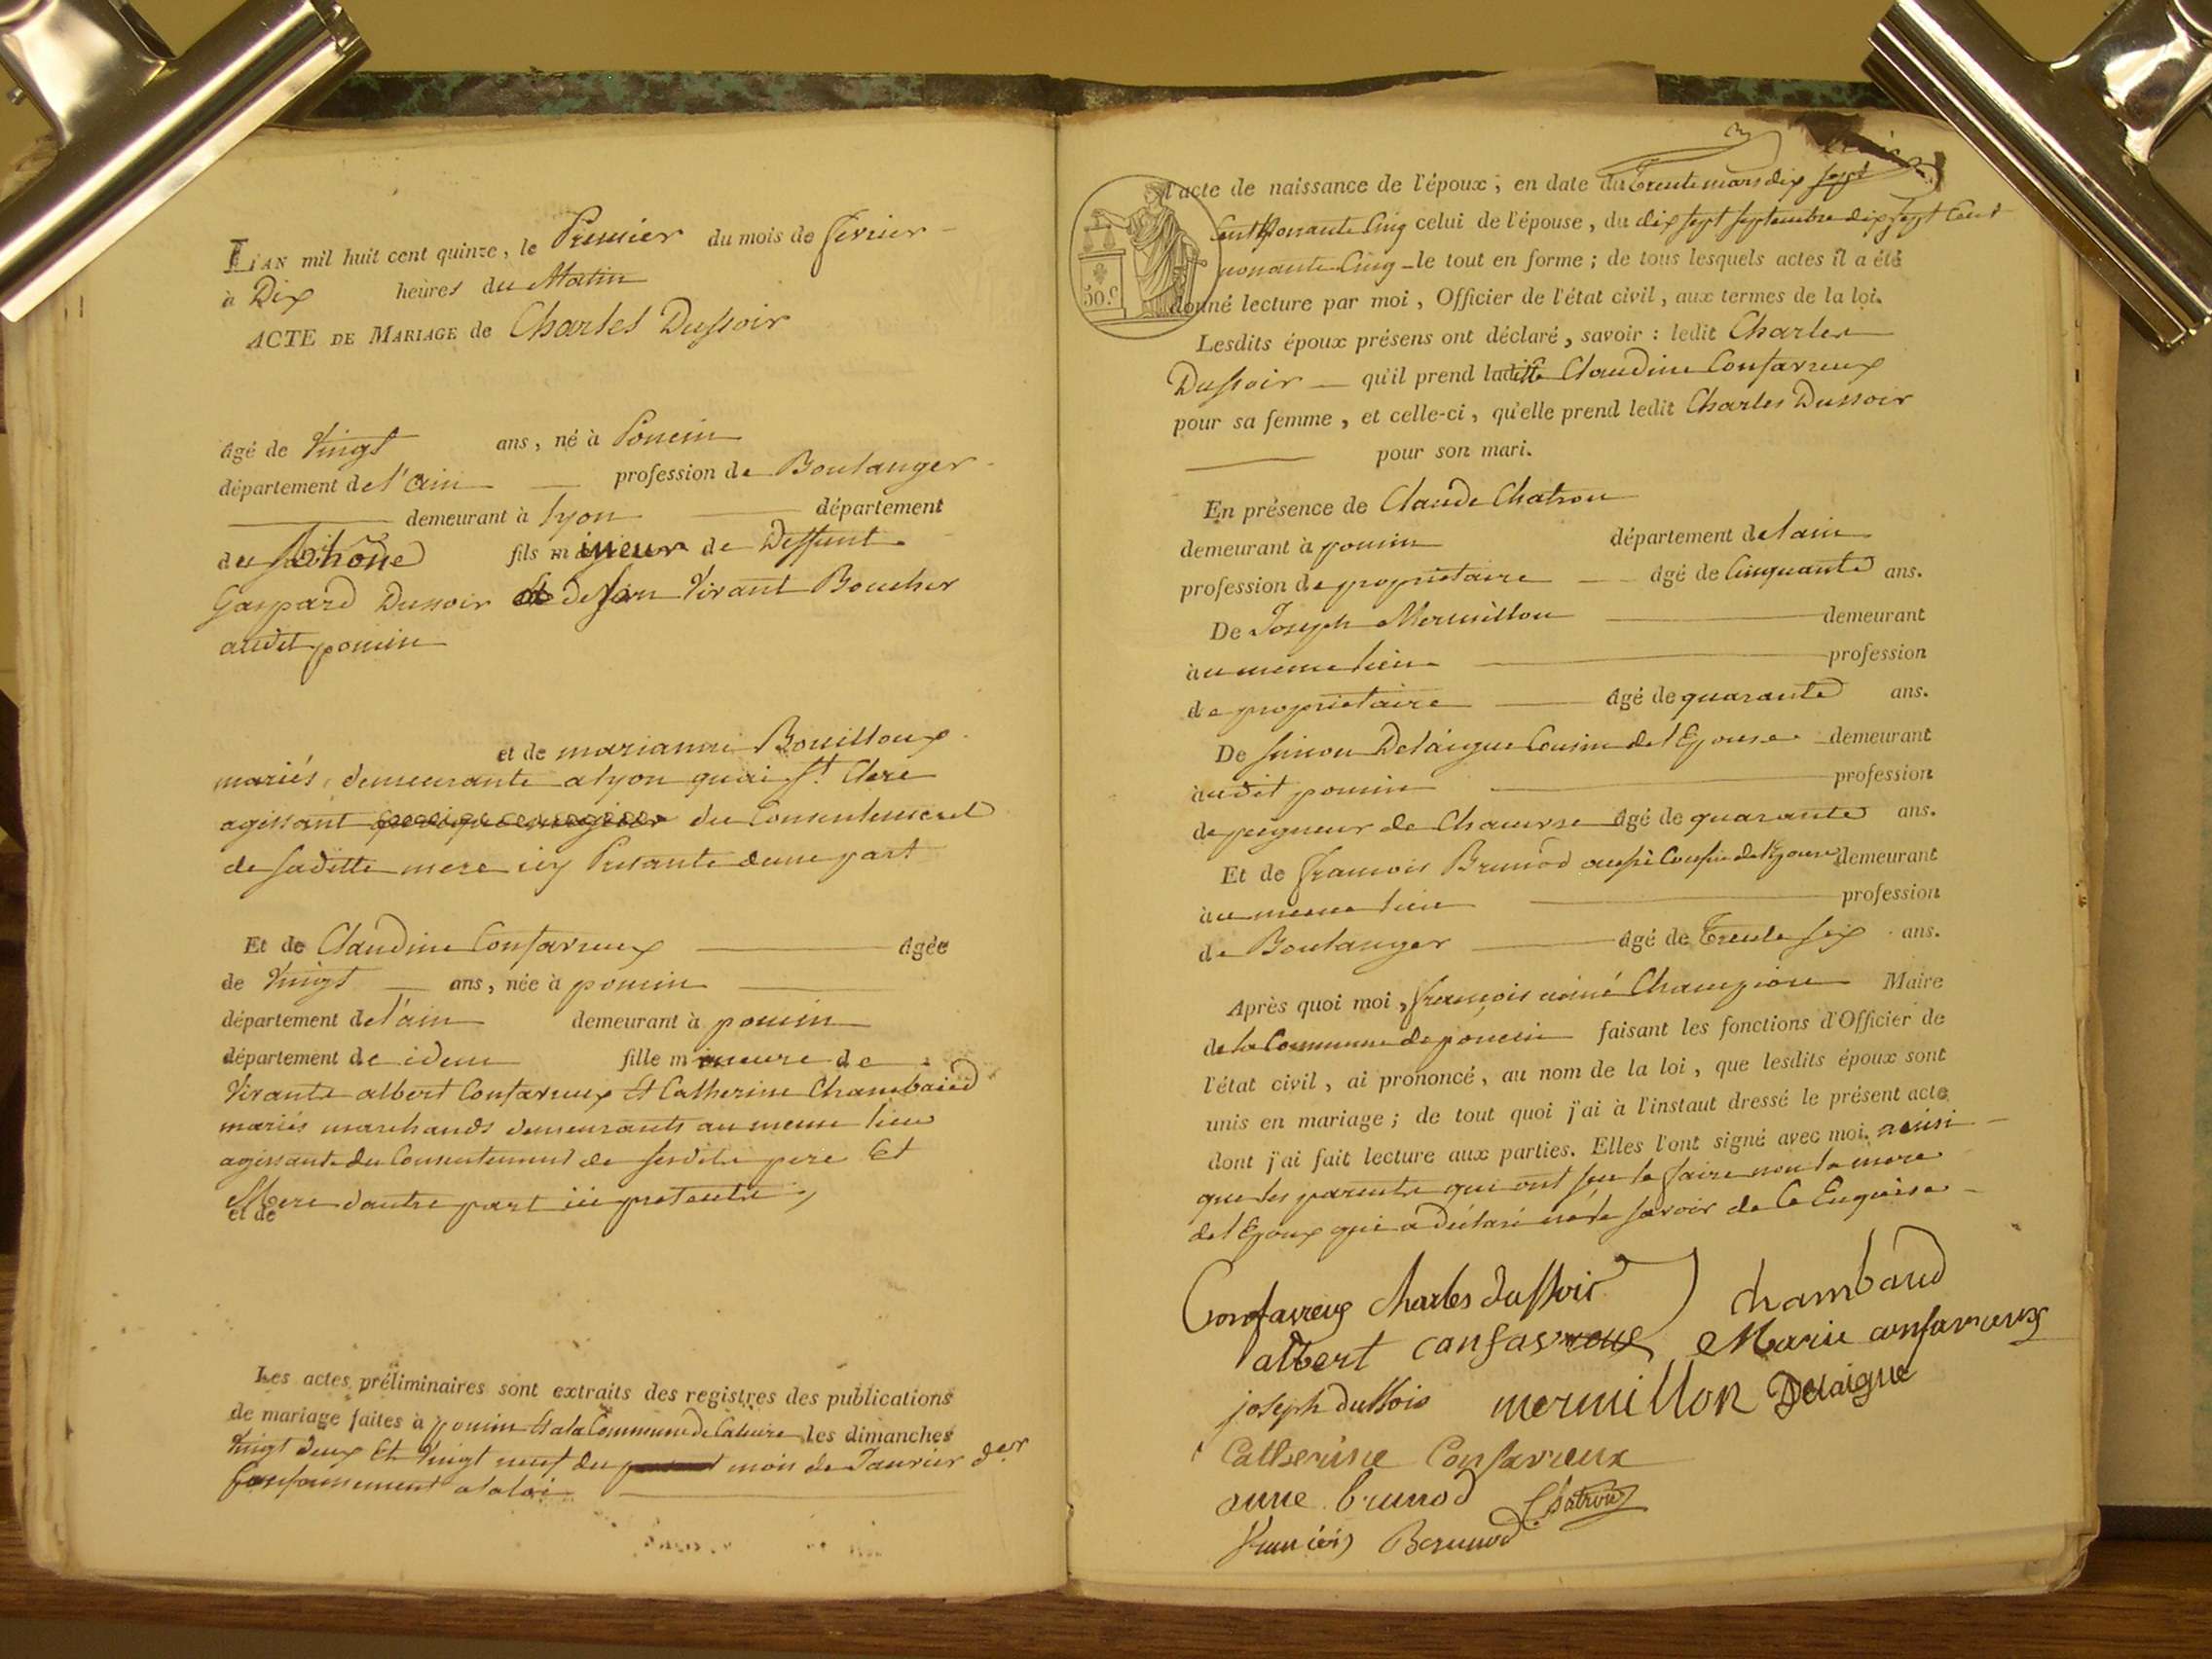 L'AN mil huit cent quinze, le Premier du mois de fevrier
à Dix heures du Matin
ACTE DE MARIAGE de Charles Dussoir
âgé de Vingt ans, né à Poncin
département de l'ain profession de Boulanger
demeurant à Lyon département
du Rhône fils mineur de Deffunt
Gaspard Dussoir de son Vivant Boucher
audit poncin
et de marianne Bouilloux
mariés, demeurante a lyon quai St. Clere
agissant du Consentement
de saditte mere icy Presante dune part
Et de Claudine Confavreux âgée
de Vingt ans, née à poncin
département de l'ain demeurant à poncin
département de idem fille mineure de
Vivants albert Confavreux Et Catherine Chambaud
mariés marchands demeurants au meme lieu
agissante du Consentement de sesdits pere Et
Mere dautre part ici presents
et de
Les actes préliminaires sont extraits des registres des publications
de mariage faites à poncin Et a la Commune de Caluire les dimanches
Vingt deux Et Vingt neuf du mois de Janvier der
Conformement a la loi
50.c
l'acte de naissance de l'époux, en date du Trente mars dix sept
cent Nonante Cinq celui de l'épouse, du dix sept septembre dix sept Cent
nonante Cinq le tout en forme; de tous lesquels actes il a été
donné lecture par moi, Officier de l'état civil, aux termes de la loi.
Lesdits époux présens ont déclaré, savoir: ledit Charles
Dussoir qu'il prend laditte Claudine Confavreux
pour sa femme, et celle-ci, qu'elle prend ledit Charles Dussoir
pour son mari.
En présence de Claude Chatron
demeurant à poncin département de lain
profession de proprietaire âgé de Cinquante ans.
De Joseph Mermillon demeurant
au meme lieu profession
de proprietaire âgé de quarante ans.
De Simon Delaigue Cousin de l'Epouse demeurant
audit poncin profession
de peigneur de Chanvre âgé de quarante ans.
Et de francois Brunod aussi Cousin de l'Epouse demeurant
au meme lieu profession
de Boulanger âgé de Trente six ans.
Après quoi moi, françois aimé Champion Maire
de la Commune de poncin faisant les fonctions d'Officier de
l'état civil, ai prononcé, au nom de la loi, que lesdits époux sont
unis en mariage; de tout quoi j'ai à l'instant dressé le présent acte
dont j'ai fait lecture aux parties. Elles l'ont signé avec moi, ainsi
que les parents qui ont su le faire non la mere
de l'Epoux qui a déclaré ne le savoir de Ce Enquise
Confavreux Charles dussoir Chambaud
albert Canfavreux Marie confavreux
joseph dussois mermillon Delaigue
Catherine Confavreux
anne brunod Chatron
francois Brunod